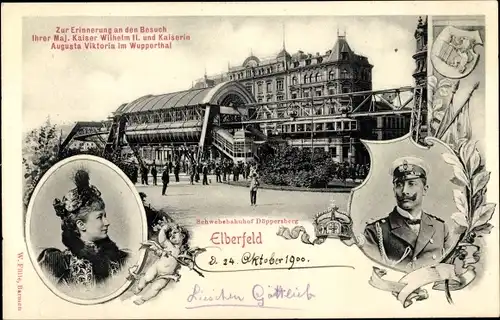 Zur Erinnerung an den Besuch
Ihrer Maj. Kaiser Wilhelm II. und Kaiserin
Augusta Viktoria im Wupperthal
Schwebebahnhof Döppersberg
Elberfeld
d. 24. Oktober 1900.
Lieschen Göttlieb
W. Fülle, Barmen